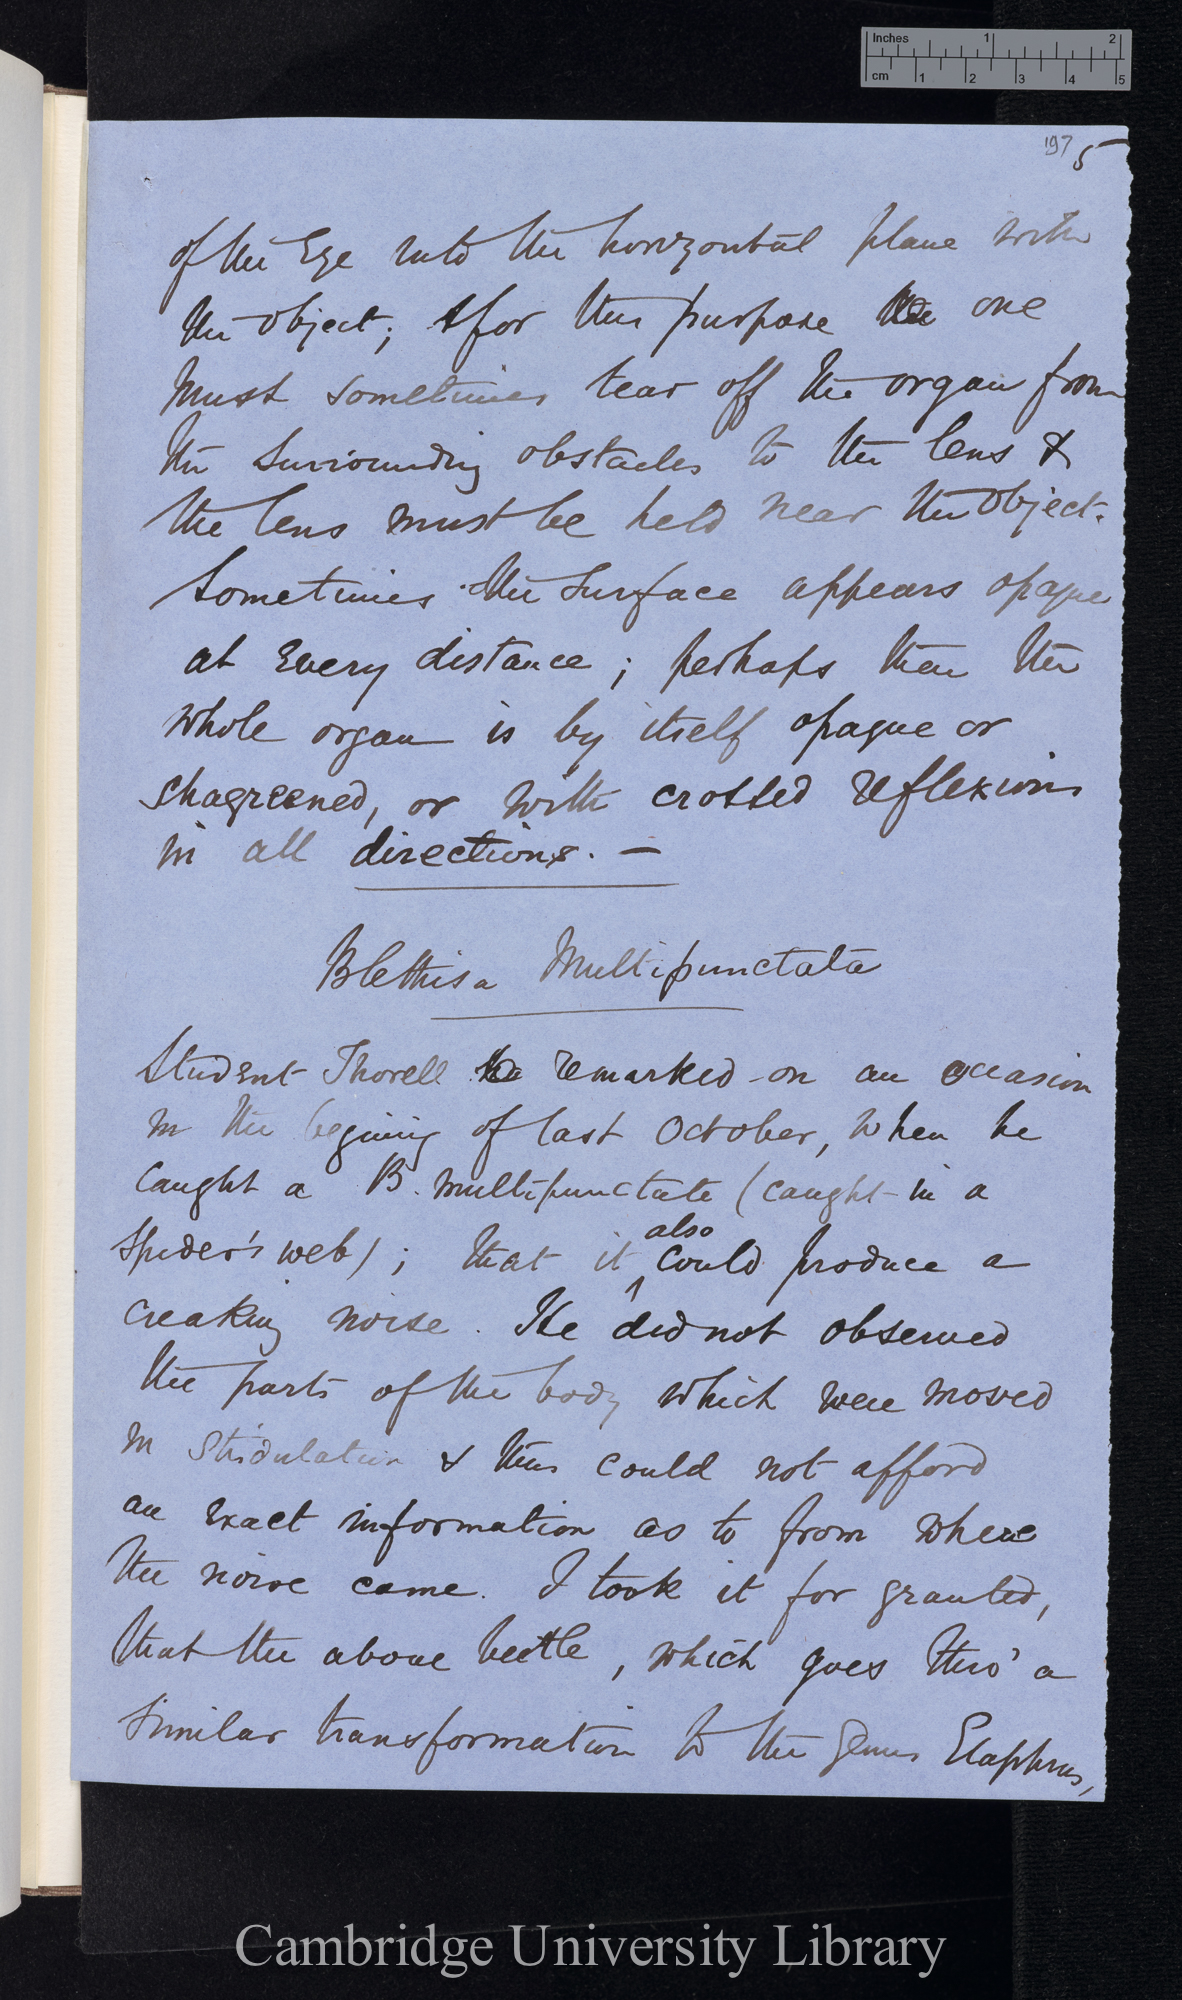 Inches 1 2
cm 1 2 3 4 5
197 5
of the Eye into the horizontal plane with
the object; & for this purpose one
must sometimes tear off the organ from
the surrounding obstacles to the lens &
the lens must be held near the object.
Sometimes the surface appears opaque
at every distance; perhaps then the
whole organ is by itself opaque or
shagreened, or with crossed reflexions
in all directions. —
Blethisa Multipunctata
Student Thorell remarked on an occasion
in the begining of last October, when he
caught a B. multipunctate (caught in a
also
spider's web); that it ^ could produce a
creaking noise. He did not observed
the parts of the body which were moved
in stridulation & thus could not afford
an exact information as to from where
the noise came. I took it for granted,
that the above beetle, which goes thro' a
similar transformation to the genus Elaphrus,
Cambridge University Library